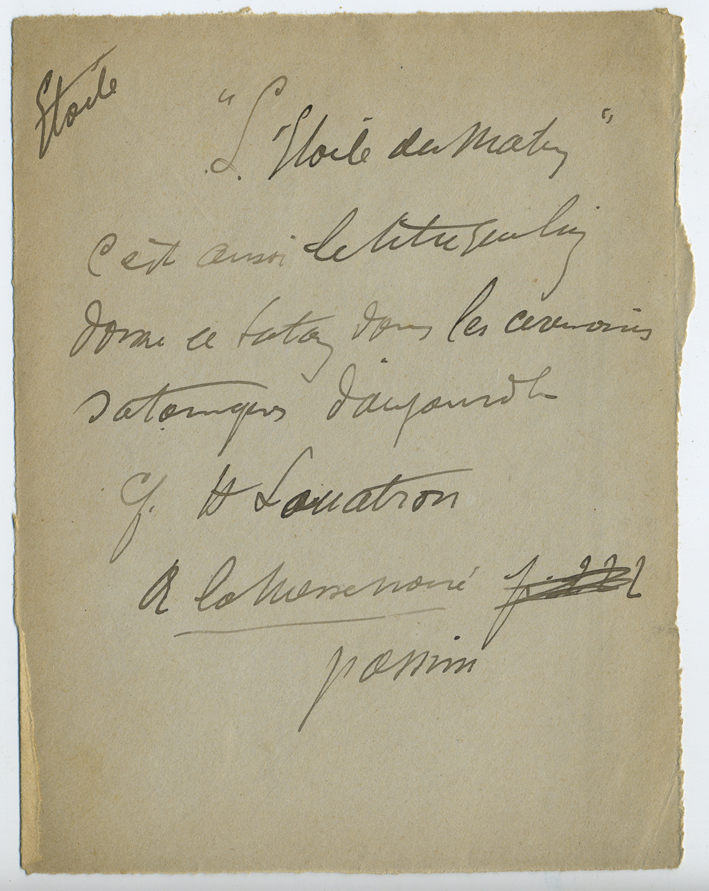 Etoile
"L'Etoile du Matin"
C'est aussi le titre qu'on lui
donne à Satan dans les cérémonies
sataniques d'aujourd'h
Cf. H Louatron
A la Messe noire
passim